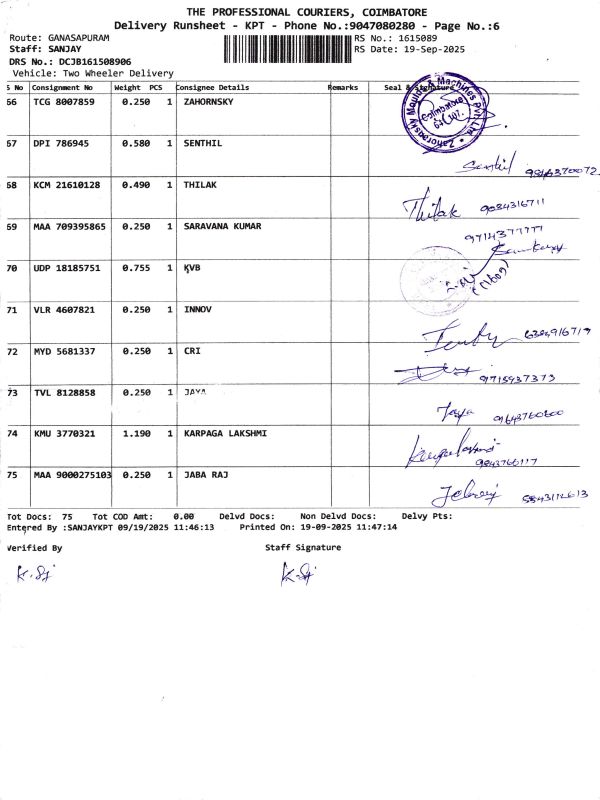 THE PROFESSIONAL COURIERS, COIMBATORE
Delivery Runsheet - KPT - Phone No.:9047080280 - Page No.:6
Route: GANASAPURAM RS No.: 1615089
Staff: SANJAY RS Date: 19-Sep-2025
DRS No.: DCJB161508906
Vehicle: Two Wheeler Delivery
S No Consignment No Weight PCS Consignee Details Remarks Seal & Signature
66 TCG 8007859 0.250 1 ZAHORNSKY
Zahoransky Moulds & Machines Pvt. Ltd. Coimbatore
67 DPI 786945 0.580 1 SENTHIL
Senthil
68 KCM 21610128 0.490 1 THILAK
Thilak 9034316711
69 MAA 709395865 0.250 1 SARAVANA KUMAR
70 UDP 18185751 0.755 1 KVB
71 VLR 4607821 0.250 1 INNOV
72 MYD 5681337 0.250 1 CRI
9715937373
73 TVL 8128858 0.250 1 JAYA
Jaya
74 KMU 3770321 1.190 1 KARPAGA LAKSHMI
9843766117
75 MAA 9000275103 0.250 1 JABA RAJ
Tot Docs: 75 Tot COD Amt: 0.00 Delvd Docs: Non Delvd Docs: Delvy Pts:
Entered By :SANJAYKPT 09/19/2025 11:46:13 Printed On: 19-09-2025 11:47:14
Verified By Staff Signature